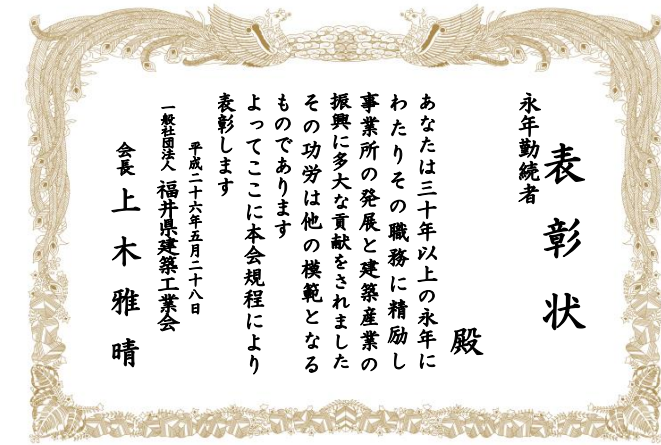 表彰状
永年勤続者
殿
あなたは三十年以上の永年に
わたりその職務に精励し
事業所の発展と建築産業の
振興に多大な貢献をされました
その功労は他の模範となる
ものであります
よってここに本会規程により
表彰します
平成二十六年五月二十八日
一般社団法人 福井県建築工業会
会長 上木雅晴